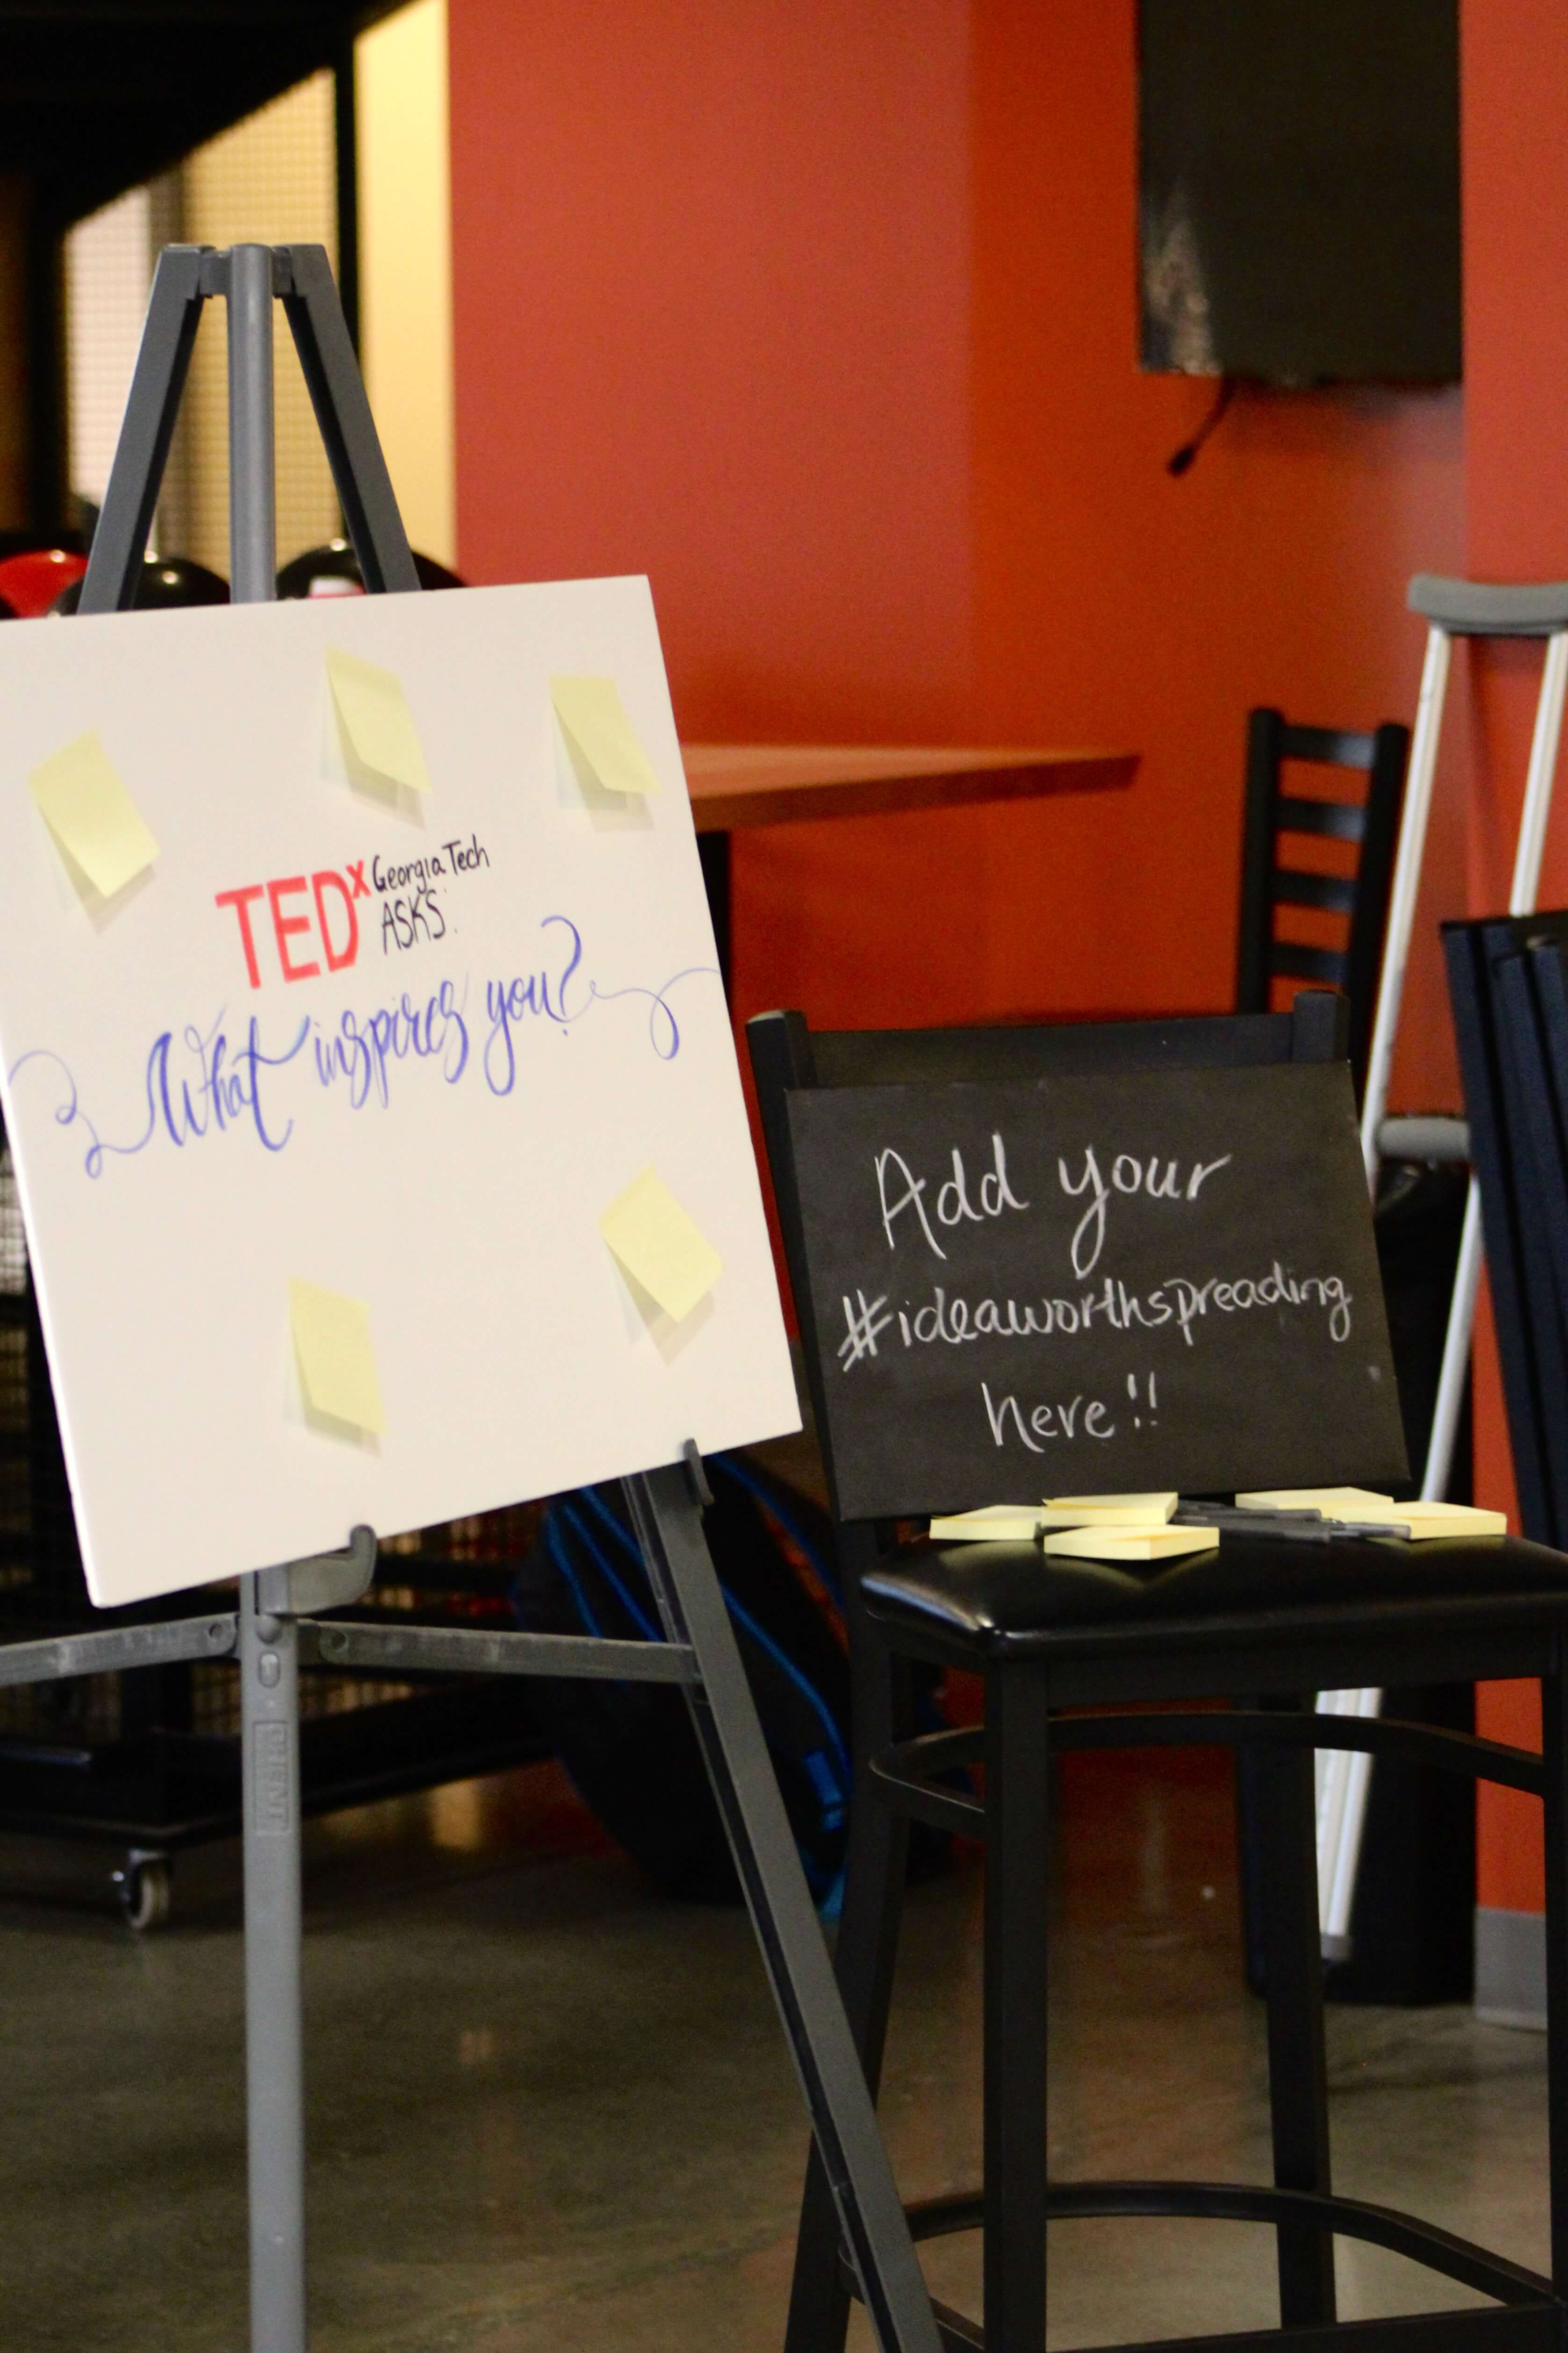 TEDx Georgia Tech
ASKS:
What inspires you?
Add your
#ideaworthspreading
here!!
QUARTET